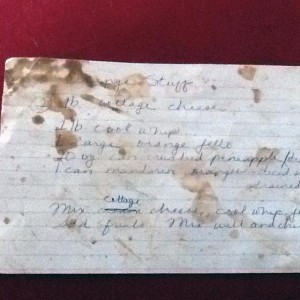 Stuff
lb. cottage cheese
1 lb cool whip
large orange jello
20 oz. can crushed pineapple
1 can mandarin oranges
drained
cottage
Mix cheese, cool whip
fruits. Mix well and